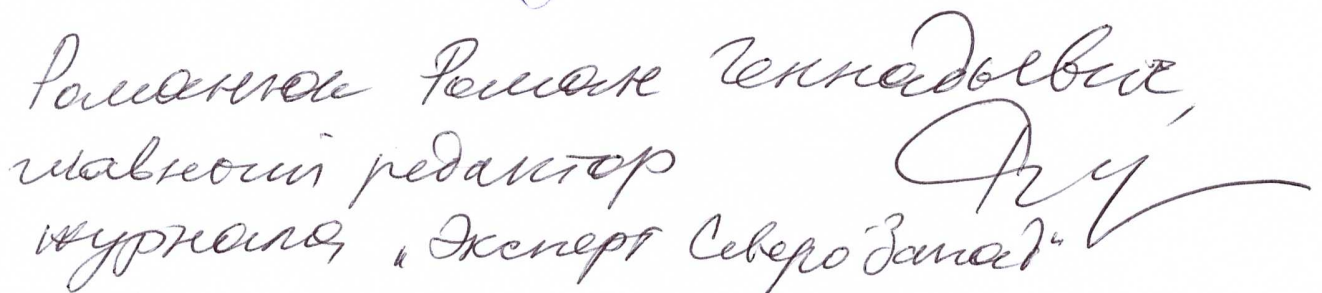 Романюк Роман Геннадьевич,
главный редактор
журнала „Эксперт Северо-Запад“